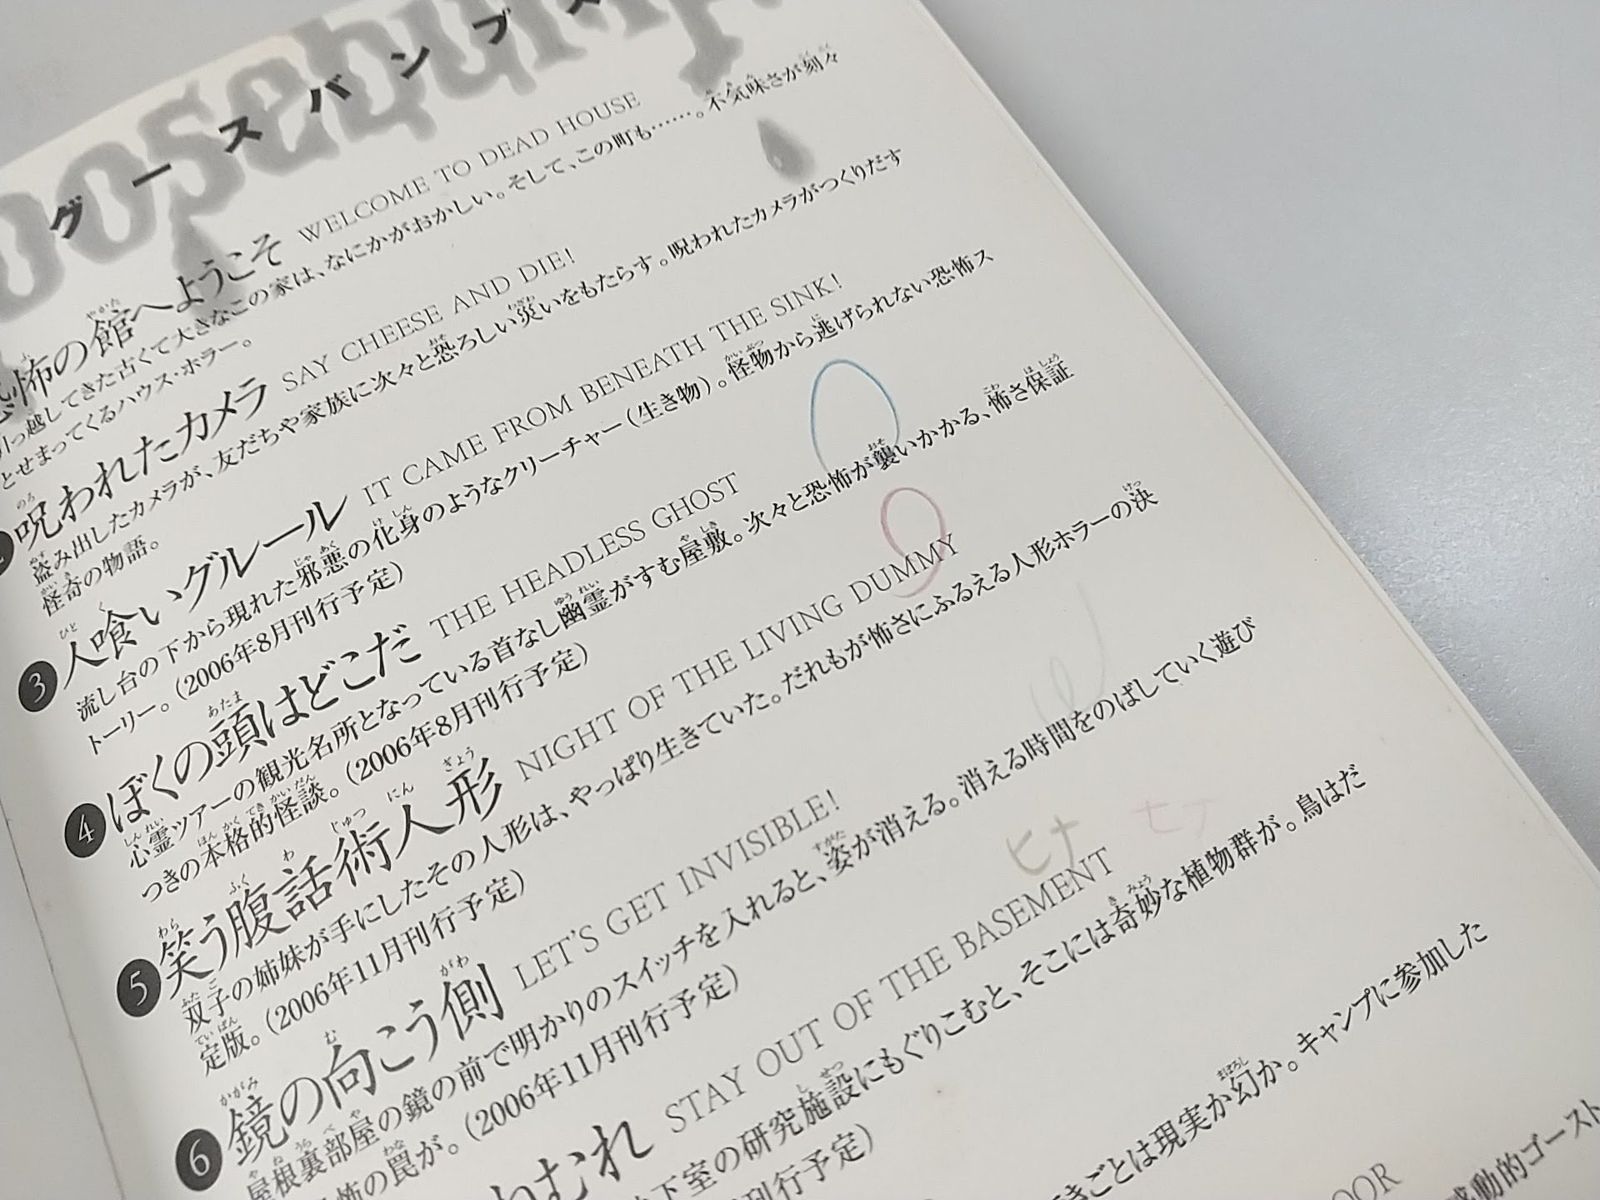 oosebump
グースバンプス
恐怖の館へようこそ WELCOME TO DEAD HOUSE
引っ越してきた古くて大きなこの家は、なにかがおかしい。そして、この町も……。不気味さが刻々
とせまってくるハウス・ホラー。
2 呪われたカメラ SAY CHEESE AND DIE!
盗み出したカメラが、友だちや家族に次々と恐ろしい災いをもたらす。呪われたカメラがつくりだす
怪奇の物語。
3 人喰いグルール IT CAME FROM BENEATH THE SINK!
流し台の下から現れた邪悪の化身のようなクリーチャー（生き物）。怪物から逃げられない恐怖ス
トーリー。（2006年8月刊行予定）
4 ぼくの頭はどこだ THE HEADLESS GHOST
心霊ツアーの観光名所となっている首なし幽霊がすむ屋敷。次々と恐怖が襲いかかる、怖さ保証
つきの本格的怪談。（2006年8月刊行予定）
5 笑う腹話術人形 NIGHT OF THE LIVING DUMMY
双子の姉妹が手にしたその人形は、やっぱり生きていた。だれもが怖さにふるえる人形ホラーの決
定版。（2006年11月刊行予定）
6 鏡の向こう側 LET'S GET INVISIBLE!
屋根裏部屋の鏡の前で明かりのスイッチを入れると、姿が消える。消える時間をのばしていく遊び
恐怖の罠が。（2006年11月刊行予定）
ヒナ
むれ STAY OUT OF THE BASEMENT
下室の研究施設にもぐりこむと、そこには奇妙な植物群が。鳥はだ
刊行予定）
きごとは現実か幻か。キャンプに参加した
OOR
感動的ゴースト